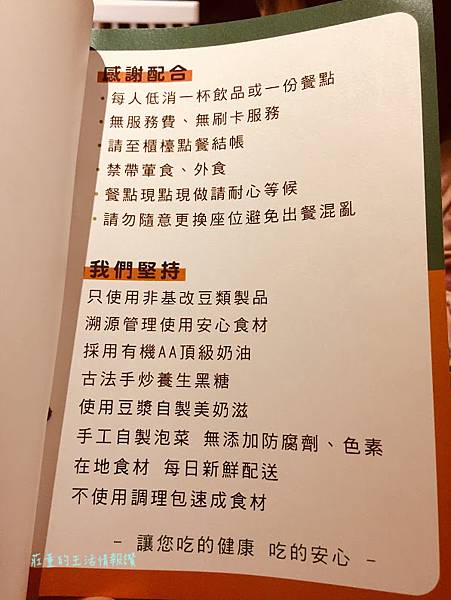 感謝配合
·每人低消一杯飲品或一份餐點
·無服務費、無刷卡服務
·請至櫃檯點餐結帳
·禁帶葷食、外食
·餐點現點現做請耐心等候
·請勿隨意更換座位避免出餐混亂
我們堅持
只使用非基改豆類製品
溯源管理使用安心食材
採用有機AA頂級奶油
古法手炒養生黑糖
使用豆漿自製美奶滋
手工自製泡菜 無添加防腐劑、色素
在地食材 每日新鮮配送
不使用調理包速成食材
- 讓您吃的健康 吃的安心 -
莊董的生活情報讚